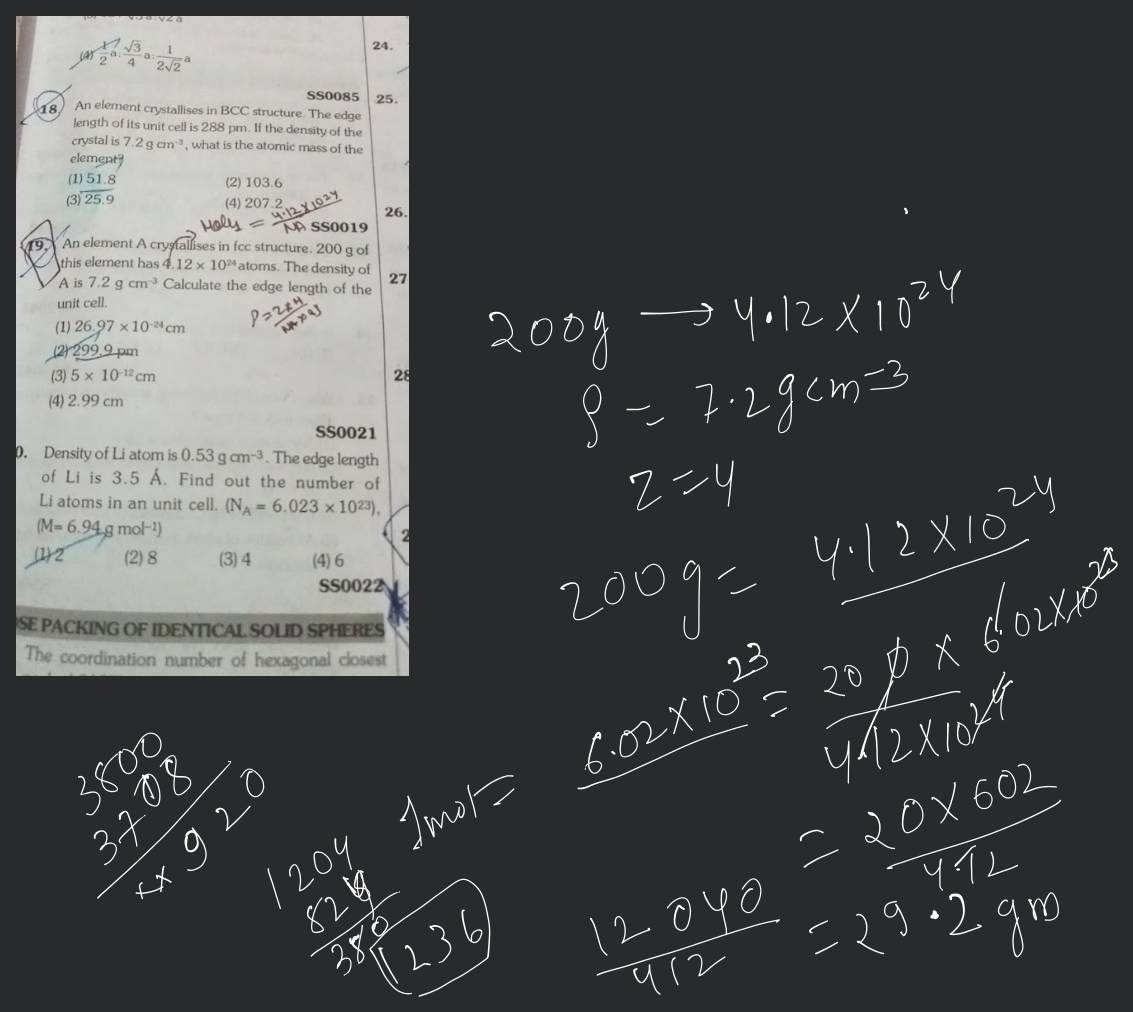 (4) 1/2 a : √3/4 a : 1/2√2 a
24.
SS0085
25.
18. An element crystallises in BCC structure. The edge
length of its unit cell is 288 pm. If the density of the
crystal is 7.2 g cm⁻³, what is the atomic mass of the
element?
(1) 51.8 (2) 103.6
(3) 25.9 (4) 207.2
26.
Moles = 4.12×10²⁴/NA
SS0019
19. An element A crystallises in fcc structure. 200 g of
this element has 4.12 × 10²⁴ atoms. The density of
A is 7.2 g cm⁻³ Calculate the edge length of the
unit cell.
27
(1) 26.97 × 10⁻²⁴ cm
(2) 299.9 pm
(3) 5 × 10⁻¹² cm
28
(4) 2.99 cm
SS0021
0. Density of Li atom is 0.53 g cm⁻³. The edge length
of Li is 3.5 Å. Find out the number of
Li atoms in an unit cell. (N_A = 6.023 × 10²³),
(M= 6.94 g mol⁻¹)
(1) 2 (2) 8 (3) 4 (4) 6
SS0022
SE PACKING OF IDENTICAL SOLID SPHERES
The coordination number of hexagonal closest
200g → 4.12 × 10²⁴
ρ = 7.2 g cm⁻³
Z = 4
200g = 4.12 × 10²⁴
1mol = 6.02 × 10²³ = 200 × 6.02 × 10²³ / 4.12 × 10²⁴
= 20 × 602 / 412
12040 / 412 = 29.2 gm
1204
824
380
1236
3800
3708
××920